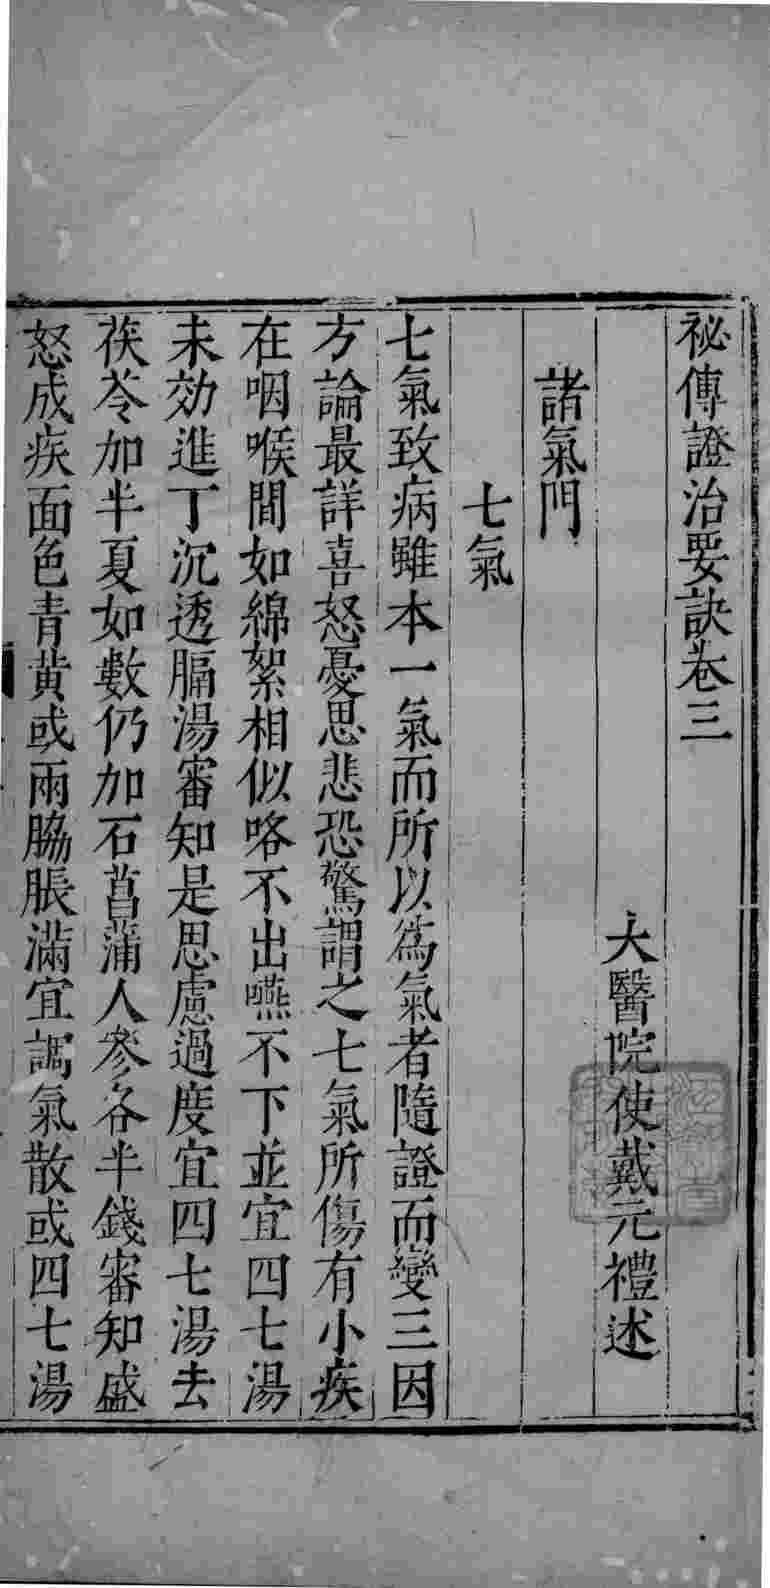 祕傳證治要訣卷三
大醫院使戴元禮述
諸氣門
七氣
七氣致病雖本一氣而所以為氣者隨證而變三因
方論最詳喜怒憂思悲恐驚謂之七氣所傷有小疾
在咽喉間如綿絮相似咯不出嚥不下並宜四七湯
未効進丁沉透膈湯審知是思慮過度宜四七湯去
茯苓加半夏如數仍加石菖蒲人參各半錢審知盛
怒成疾面色青黃或兩脇脹滿宜調氣散或四七湯